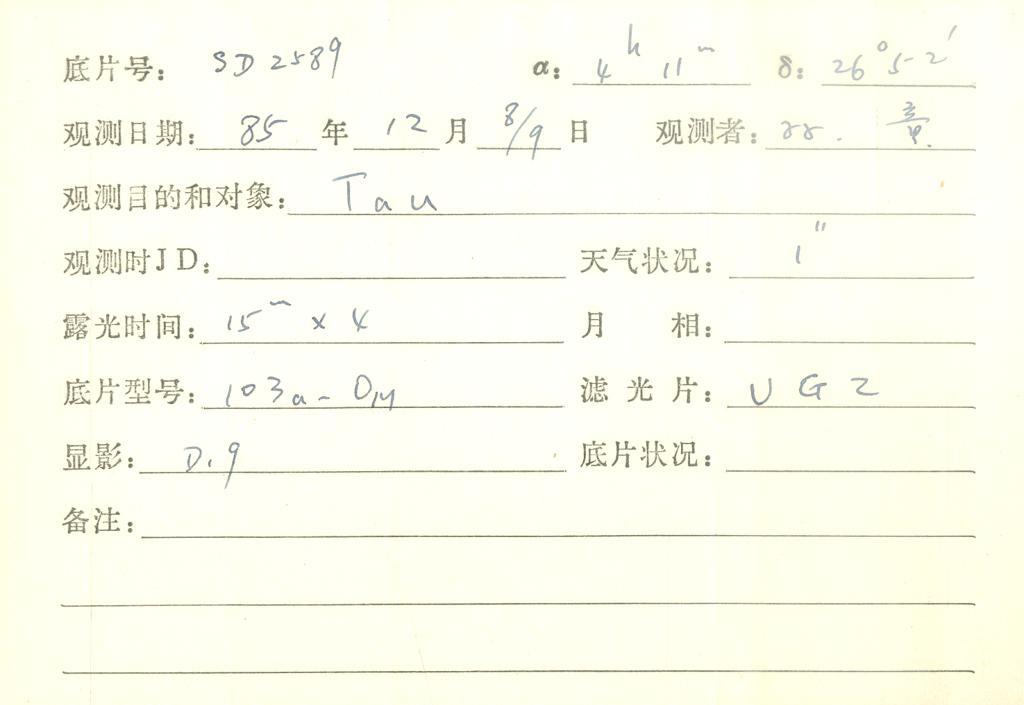 底片号: SD2589 α: 4h 11m δ: 26°52′
观测日期: 85 年 12 月 8/9 日 观测者:
观测目的和对象: Tau
观测时JD: 天气状况: 1″
露光时间: 15m × 4 月 相:
底片型号: 103a-O 滤 光 片: UG2
显影: D.9 底片状况:
备注: